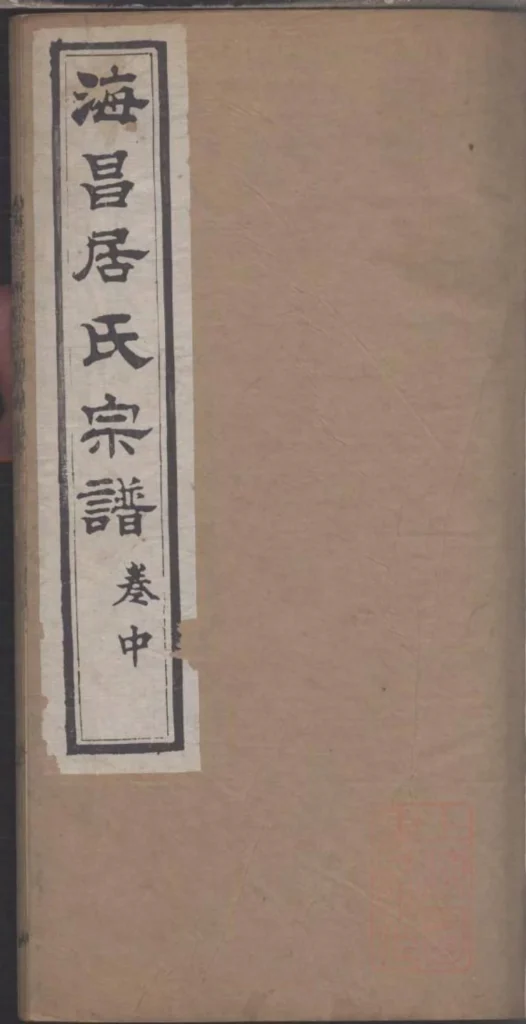 海昌居氏宗譜
卷中